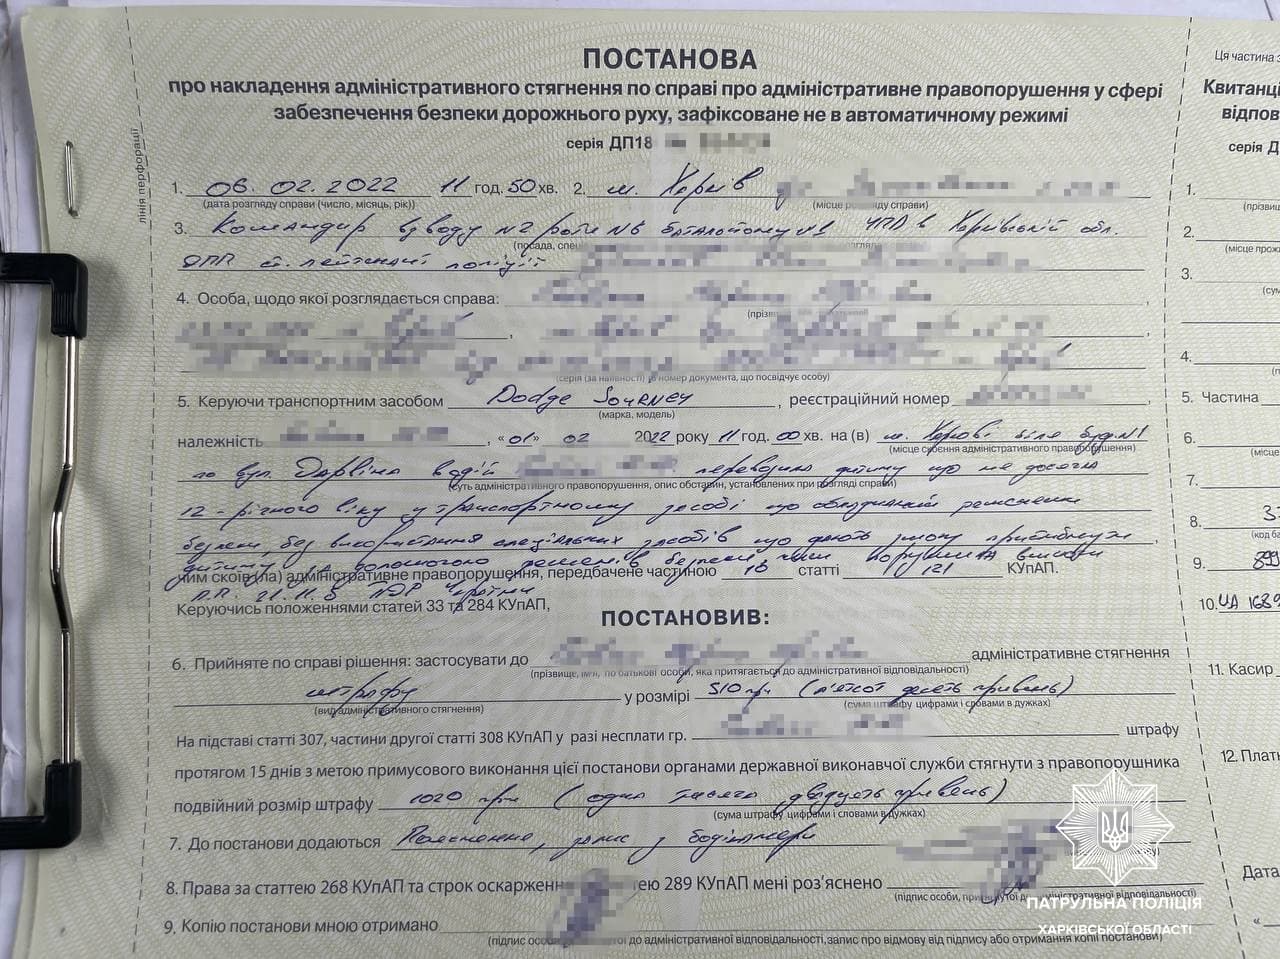 ПОСТАНОВА
про накладення адміністративного стягнення по справі про адміністративне правопорушення у сфері
забезпечення безпеки дорожнього руху, зафіксоване не в автоматичному режимі
серія ДП18
лінія перфорації
1. 06.02.2022 11 год. 50 хв. 2. м. Харків
(дата розгляду справи (число, місяць, рік)) (місце розгляду справи)
3. Командир взводу №2 роти №6 батальйону №1 УПП в Харківській обл.
(посада, спец
ДПП ст. лейтенант поліції
4. Особа, щодо якої розглядається справа:
(прізви
(серія (за наявності) та номер документа, що посвідчує особу)
5. Керуючи транспортним засобом Dodge Journey, реєстраційний номер
(марка, модель)
належність , «01» 02 2022 року 11 год. 00 хв. на (в) м. Харкові біля буд. №1
(місце скоєння адміністративного правопорушення)
по вул. Дарвіна водій перевозила дитину що не досягла
(суть адміністративного правопорушення, опис обставин, установлених при розгляді справи)
12-річного віку у транспортному засобі що обладнаний ременями
безпеки, без використання спеціальних засобів що дають змогу пристебнути
дитину за допомогою ременів безпеки чим порушила вимоги
ним скоїв(ла) адміністративне правопорушення, передбачене частиною статті 121 КУпАП.
п.п. 21.11.б ПДР України
Керуючись положеннями статей 33 та 284 КУпАП,
ПОСТАНОВИВ:
6. Прийняте по справі рішення: застосувати до адміністративне стягнення
(прізвище, ім'я, по батькові особи, яка притягається до адміністративної відповідальності)
штрафу у розмірі 510 грн (п'ятсот десять гривень)
(вид адміністративного стягнення) (сума штрафу цифрами і словами в дужках)
На підставі статті 307, частини другої статті 308 КУпАП у разі несплати гр. штрафу
протягом 15 днів з метою примусового виконання цієї постанови органами державної виконавчої служби стягнути з правопорушника
подвійний розмір штрафу 1020 грн (одна тисяча двадцять гривень)
(сума штрафу цифрами і словами в дужках)
7. До постанови додаються Пояснення, запис з бодікамери
8. Права за статтею 268 КУпАП та строк оскаржен тею 289 КУпАП мені роз'яснено
(підпис особи, відповідальності)
9. Копію постанови мною отримано
(підпис особ до адміністративної відповідальності, запис про відмову від підпису або отримання копії постанови)
Ця частина з
Квитанці
відпов
серія Д
1.
(прізвищ
2.
(місце прож
3.
(су
4.
5. Частина
6.
(місце
7.
8. 3
(код ба
9. 899
10. UA 1689
11. Касир
12. Платн
Дата
«
ПАТРУЛЬНА ПОЛІЦІЯ
ХАРКІВСЬКОЇ ОБЛАСТІ